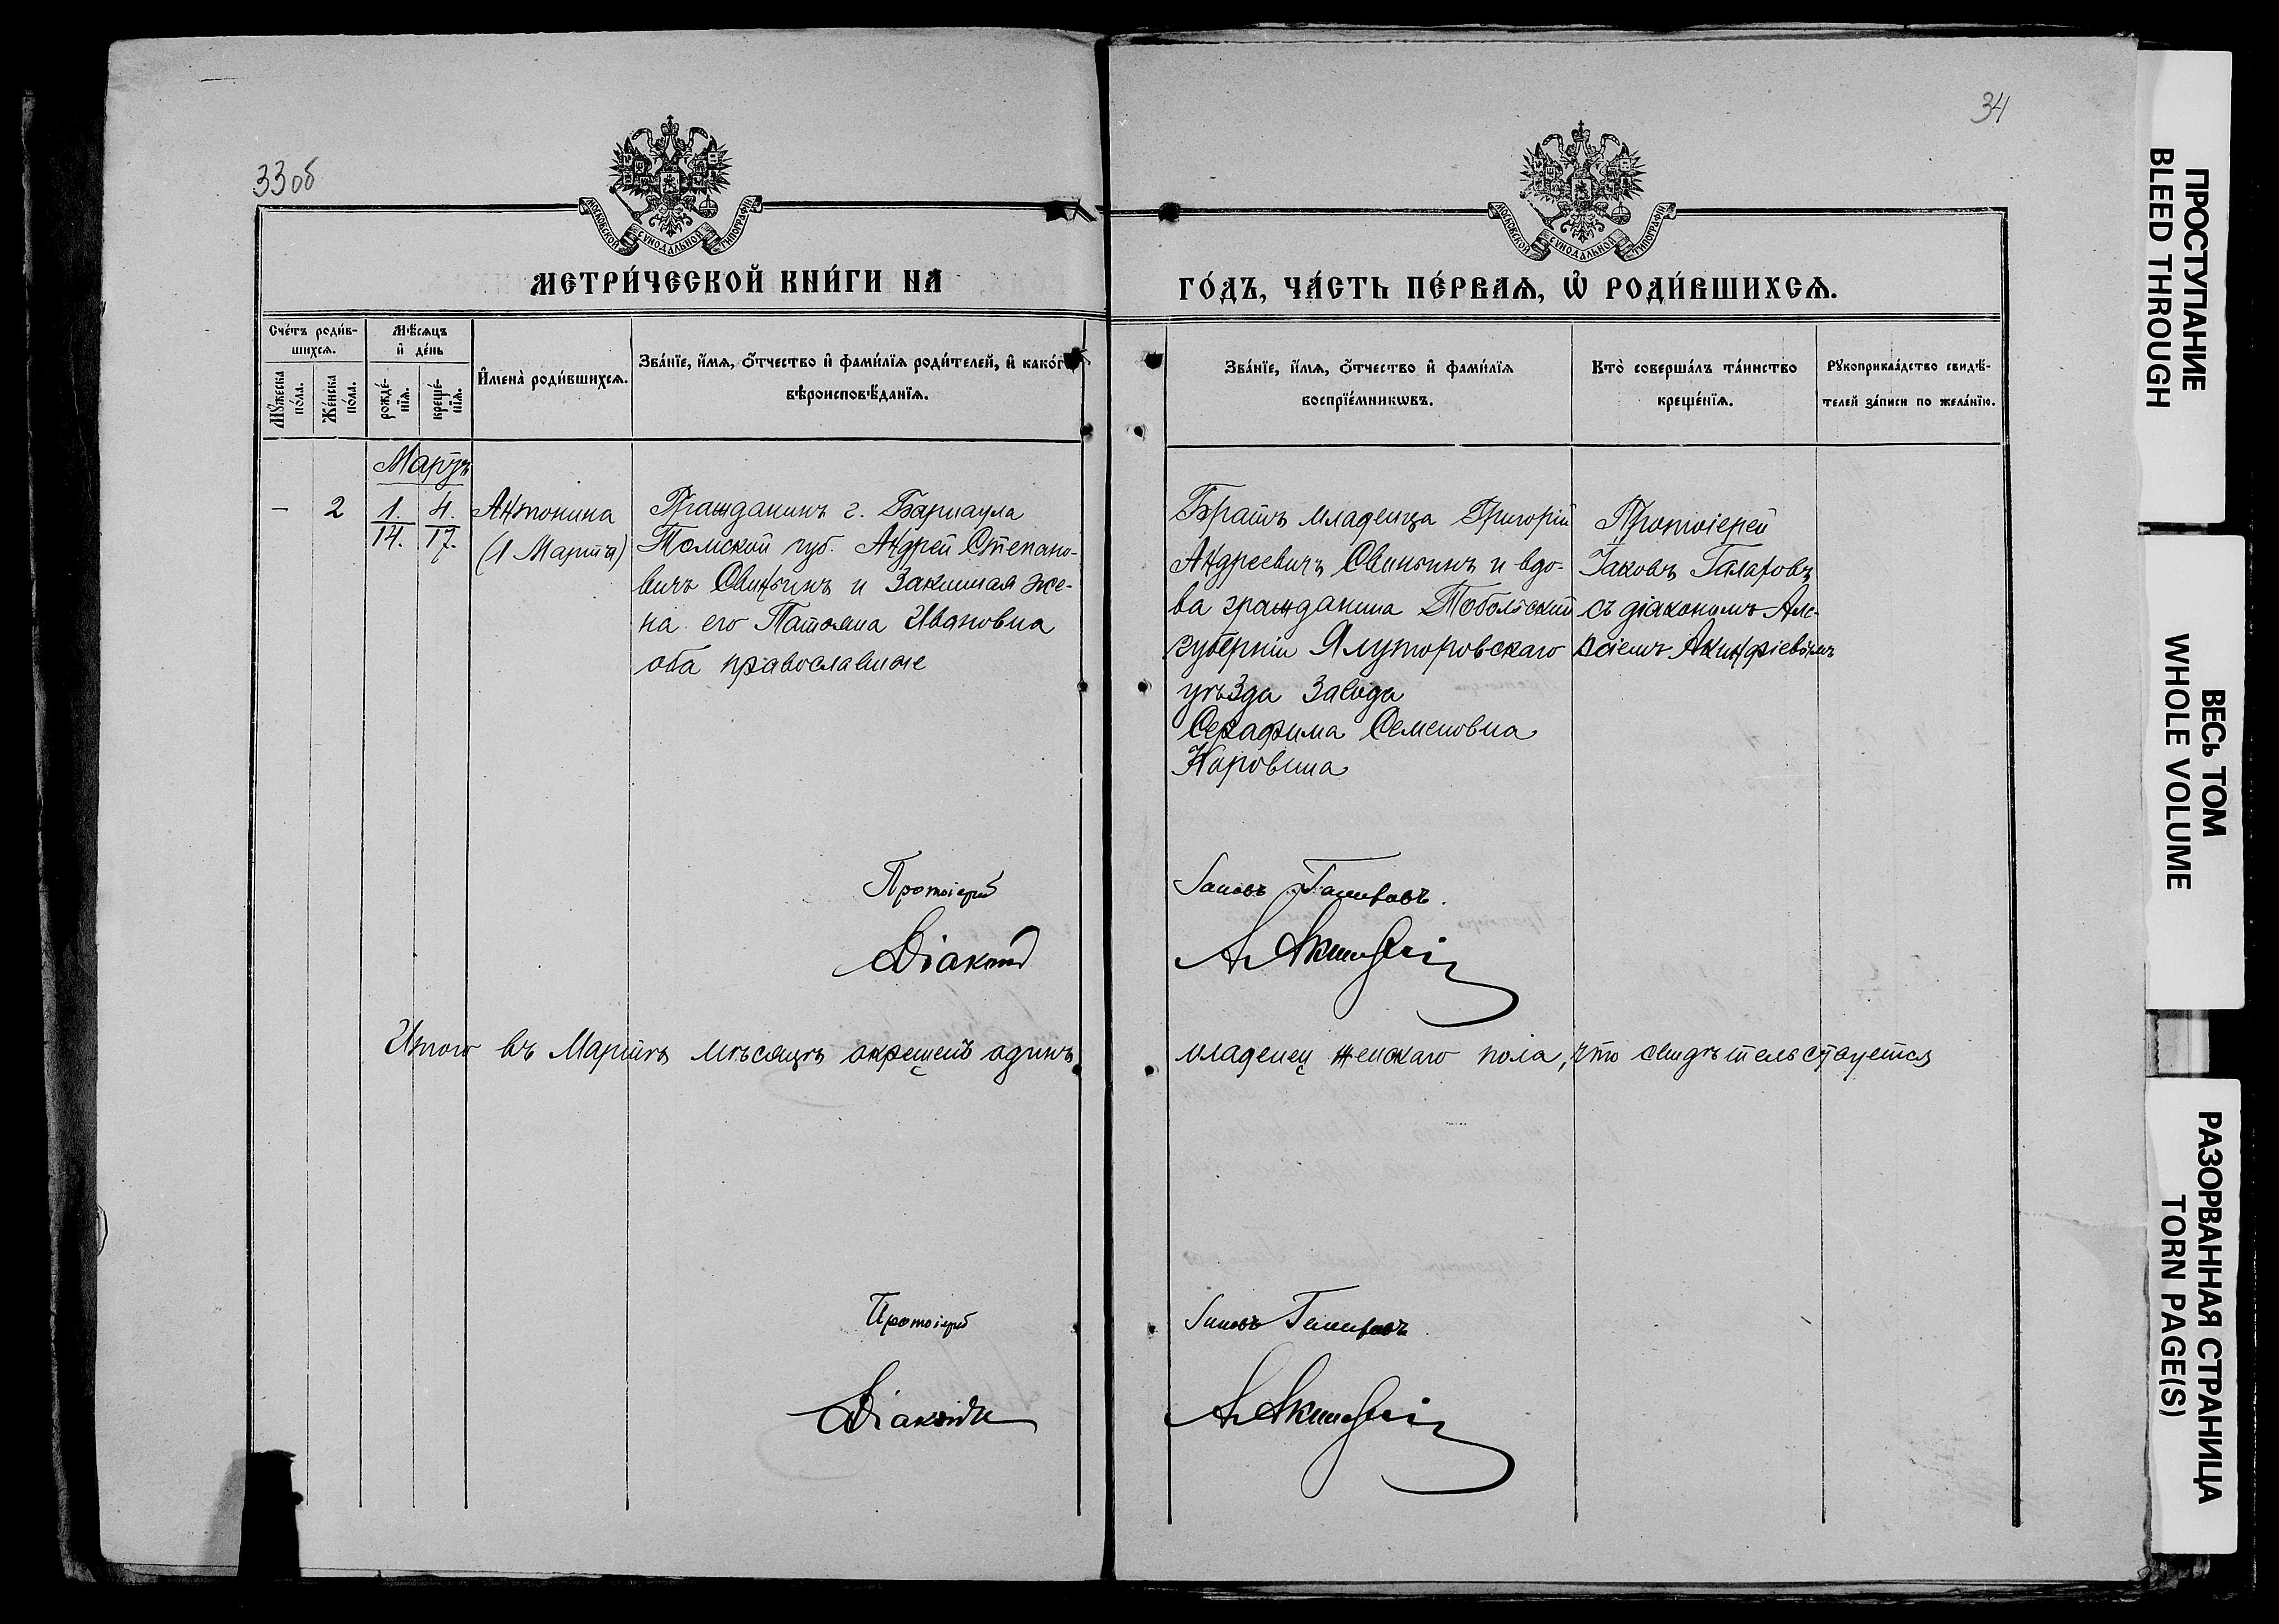 33об
34
МОСКОВСКОЙ СѴНОДАЛЬНОЙ ТИПОГРАФІИ
МОСКОВСКОЙ СѴНОДАЛЬНОЙ ТИПОГРАФІИ
МЕТРИ́ЧЕСКОЙ КНИ́ГИ НА
ГО́ДЪ, ЧА́СТЬ ПЕ́РВАѦ, Ѡ҆ РОДИ́ВШИХСѦ.
Сче́тъ роди́в-
шихсѧ.
Мꙋ́жеска
по́ла.
Же́нска
по́ла.
Мѣ́сѧцъ
и҆ де́нь
рожде́-
нїѧ.
креще́-
нїѧ.
И҆мена̀ роди́вшихсѧ.
Зва́нїе, и҆́мѧ, ѻ҆́тчество и҆ фами́лїѧ роди́телей, и҆ како́гѡ
вѣроисповѣ́данїѧ.
Зва́нїе, и҆́мѧ, ѻ҆́тчество и҆ фами́лїѧ
воспрїе́мникѡвъ.
Кто̀ соверша́лъ та́инство
креще́нїѧ.
Рꙋкоприкла́дство свидѣ́-
телей за́писи по жела́нїю.
Мартъ
–
2
1.
14.
4.
17.
Антонина
(1 Марта)
Гражданинъ г. Барнаула
Томской губ. Андрей Степано-
вичъ Свиньинъ и законная же-
на его Татьяна Ивановна
оба православные
Братъ младенца Григорій
Андреевичъ Свиньинъ и вдо-
ва гражданина Тобольской
губерніи Ялуторовскаго
уѣзда Завода
Серафима Семеновна
Протоіерей
Іаковъ Галаховъ
съ діакономъ Але-
ксіемъ Акинфіевымъ
Протоіерей
Іаковъ Галаховъ.
Діаконъ
А Акинфіев
Итого въ Мартѣ мѣсяцѣ окрещенъ одинъ
младенец женскаго пола, что свидѣтельствуется
Протоіерей
Іаковъ Галаховъ
Діаконъ
А Акинфіев
ПРОСТУПАНИЕ
BLEED THROUGH
ВЕСЬ ТОМ
WHOLE VOLUME
РАЗОРВАННАЯ СТРАНИЦА
TORN PAGE(S)